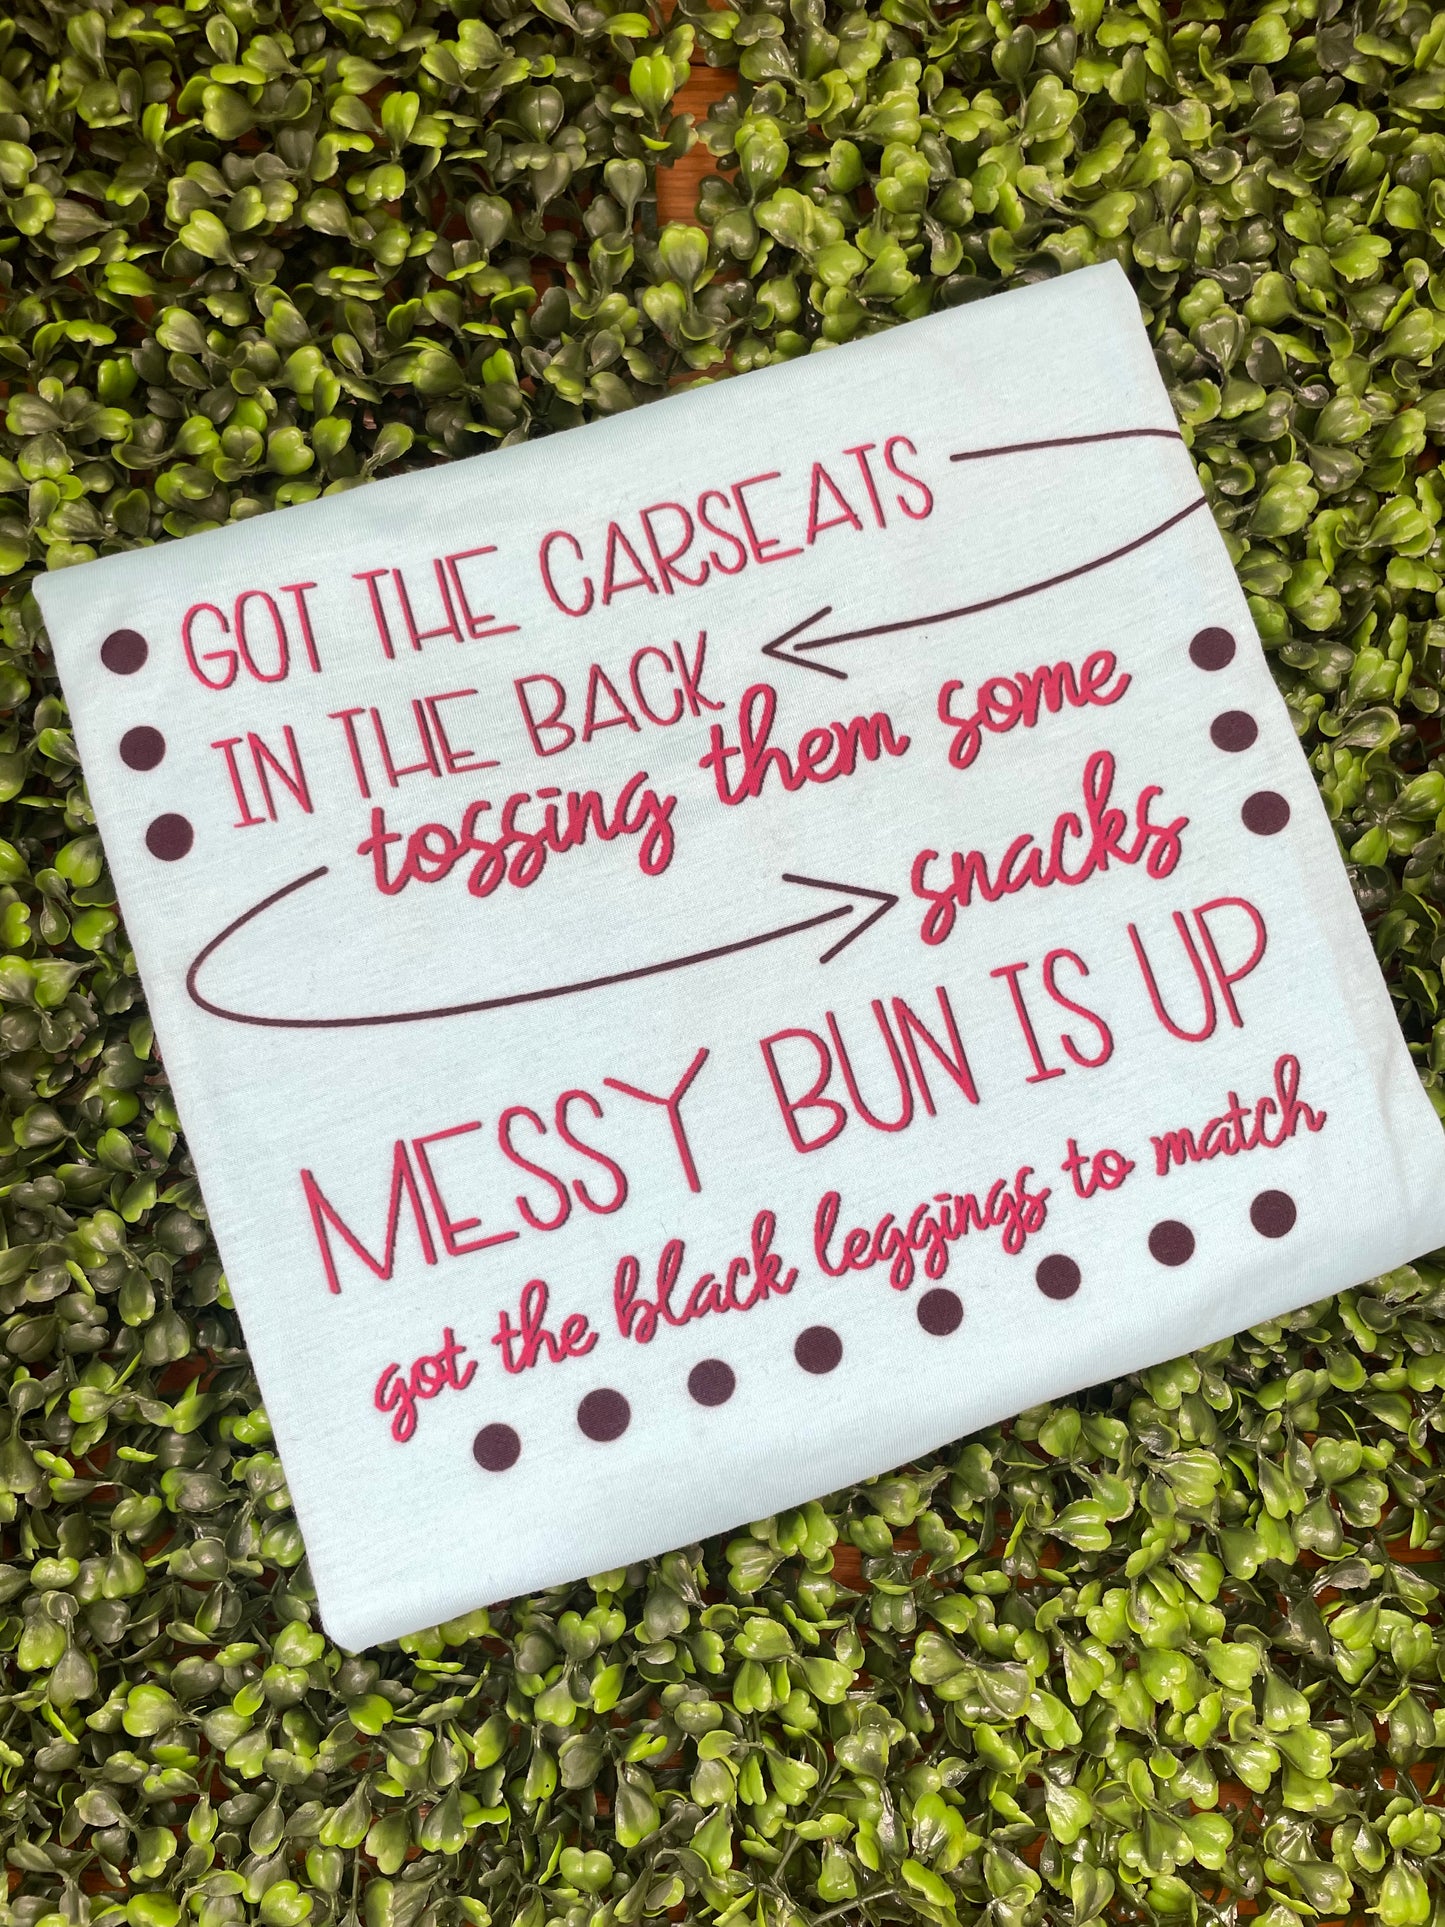 GOT THE CARSEATS
IN THE BACK
tossing them some
snacks
MESSY BUN IS UP
got the black leggings to match